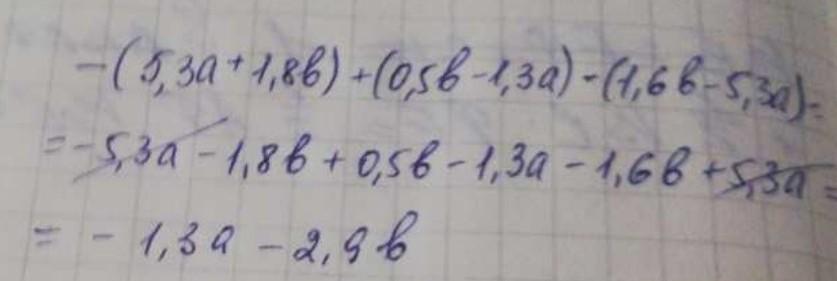 -(5,3a+1,8b)+(0,5b-1,3a)-(1,6b-5,3a)=
=-5,3a-1,8b+0,5b-1,3a-1,6b+5,3a=
=-1,3a-2,9b